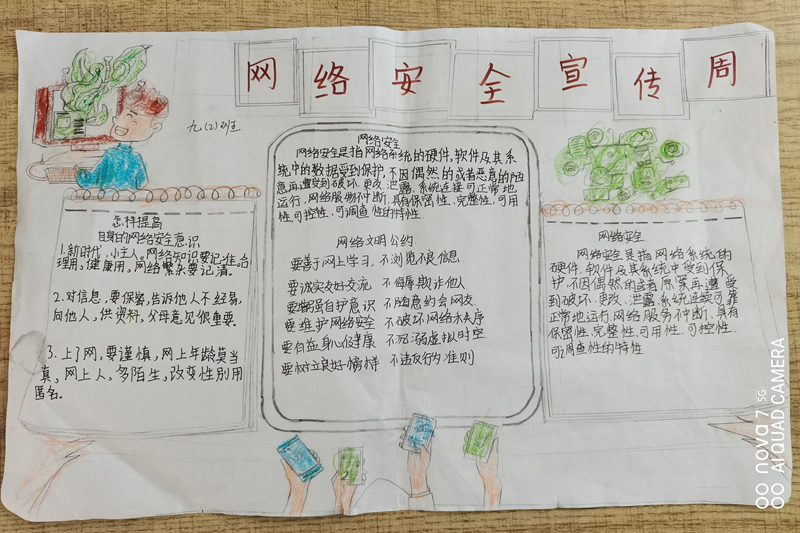 网络安全宣传周
九(2)班
怎样提高
自身的网络安全意识
1.新时代,小主人。网络知识要记住。合
理用,健康用。网络繁杂要记清。
2.对信息,要保密,告诉他人不轻易,
向他人,供资料,父母意见很重要。
3.上了网,要谨慎,网上年龄莫当
真,网上人,多陌生,改变性别用
匿名。
网络安全
网络安全是指网络系统的硬件,软件及其系
统中的数据受到保护,不因偶然的或者恶意的
意再遭受到破坏、更改、泄露、系统连接可正常地
运行,网络服务不断,具有保密性、完整性、可用
性、可控性、可调查性的特性
网络文明公约
要善于网上学习,不浏览不良信息
要诚实友好交流 不侮辱欺诈他人
要增强自护意识 不随意约会网友
要维护网络安全 不破坏网络秩序
要有益身心健康 不沉溺虚拟时空
要树立良好榜样 不违反行为准则
网络安全
网络安全是指网络系统的
硬件,软件及其系统中受到保
护,不因偶然的或者原案再遭受
到破坏、更改、泄露、系统连续可靠
正常地运行网络服务不断、具有
保密性、完整性、可用性、可控性、
可调查性的特性
nova 7 5G
AI QUAD CAMERA